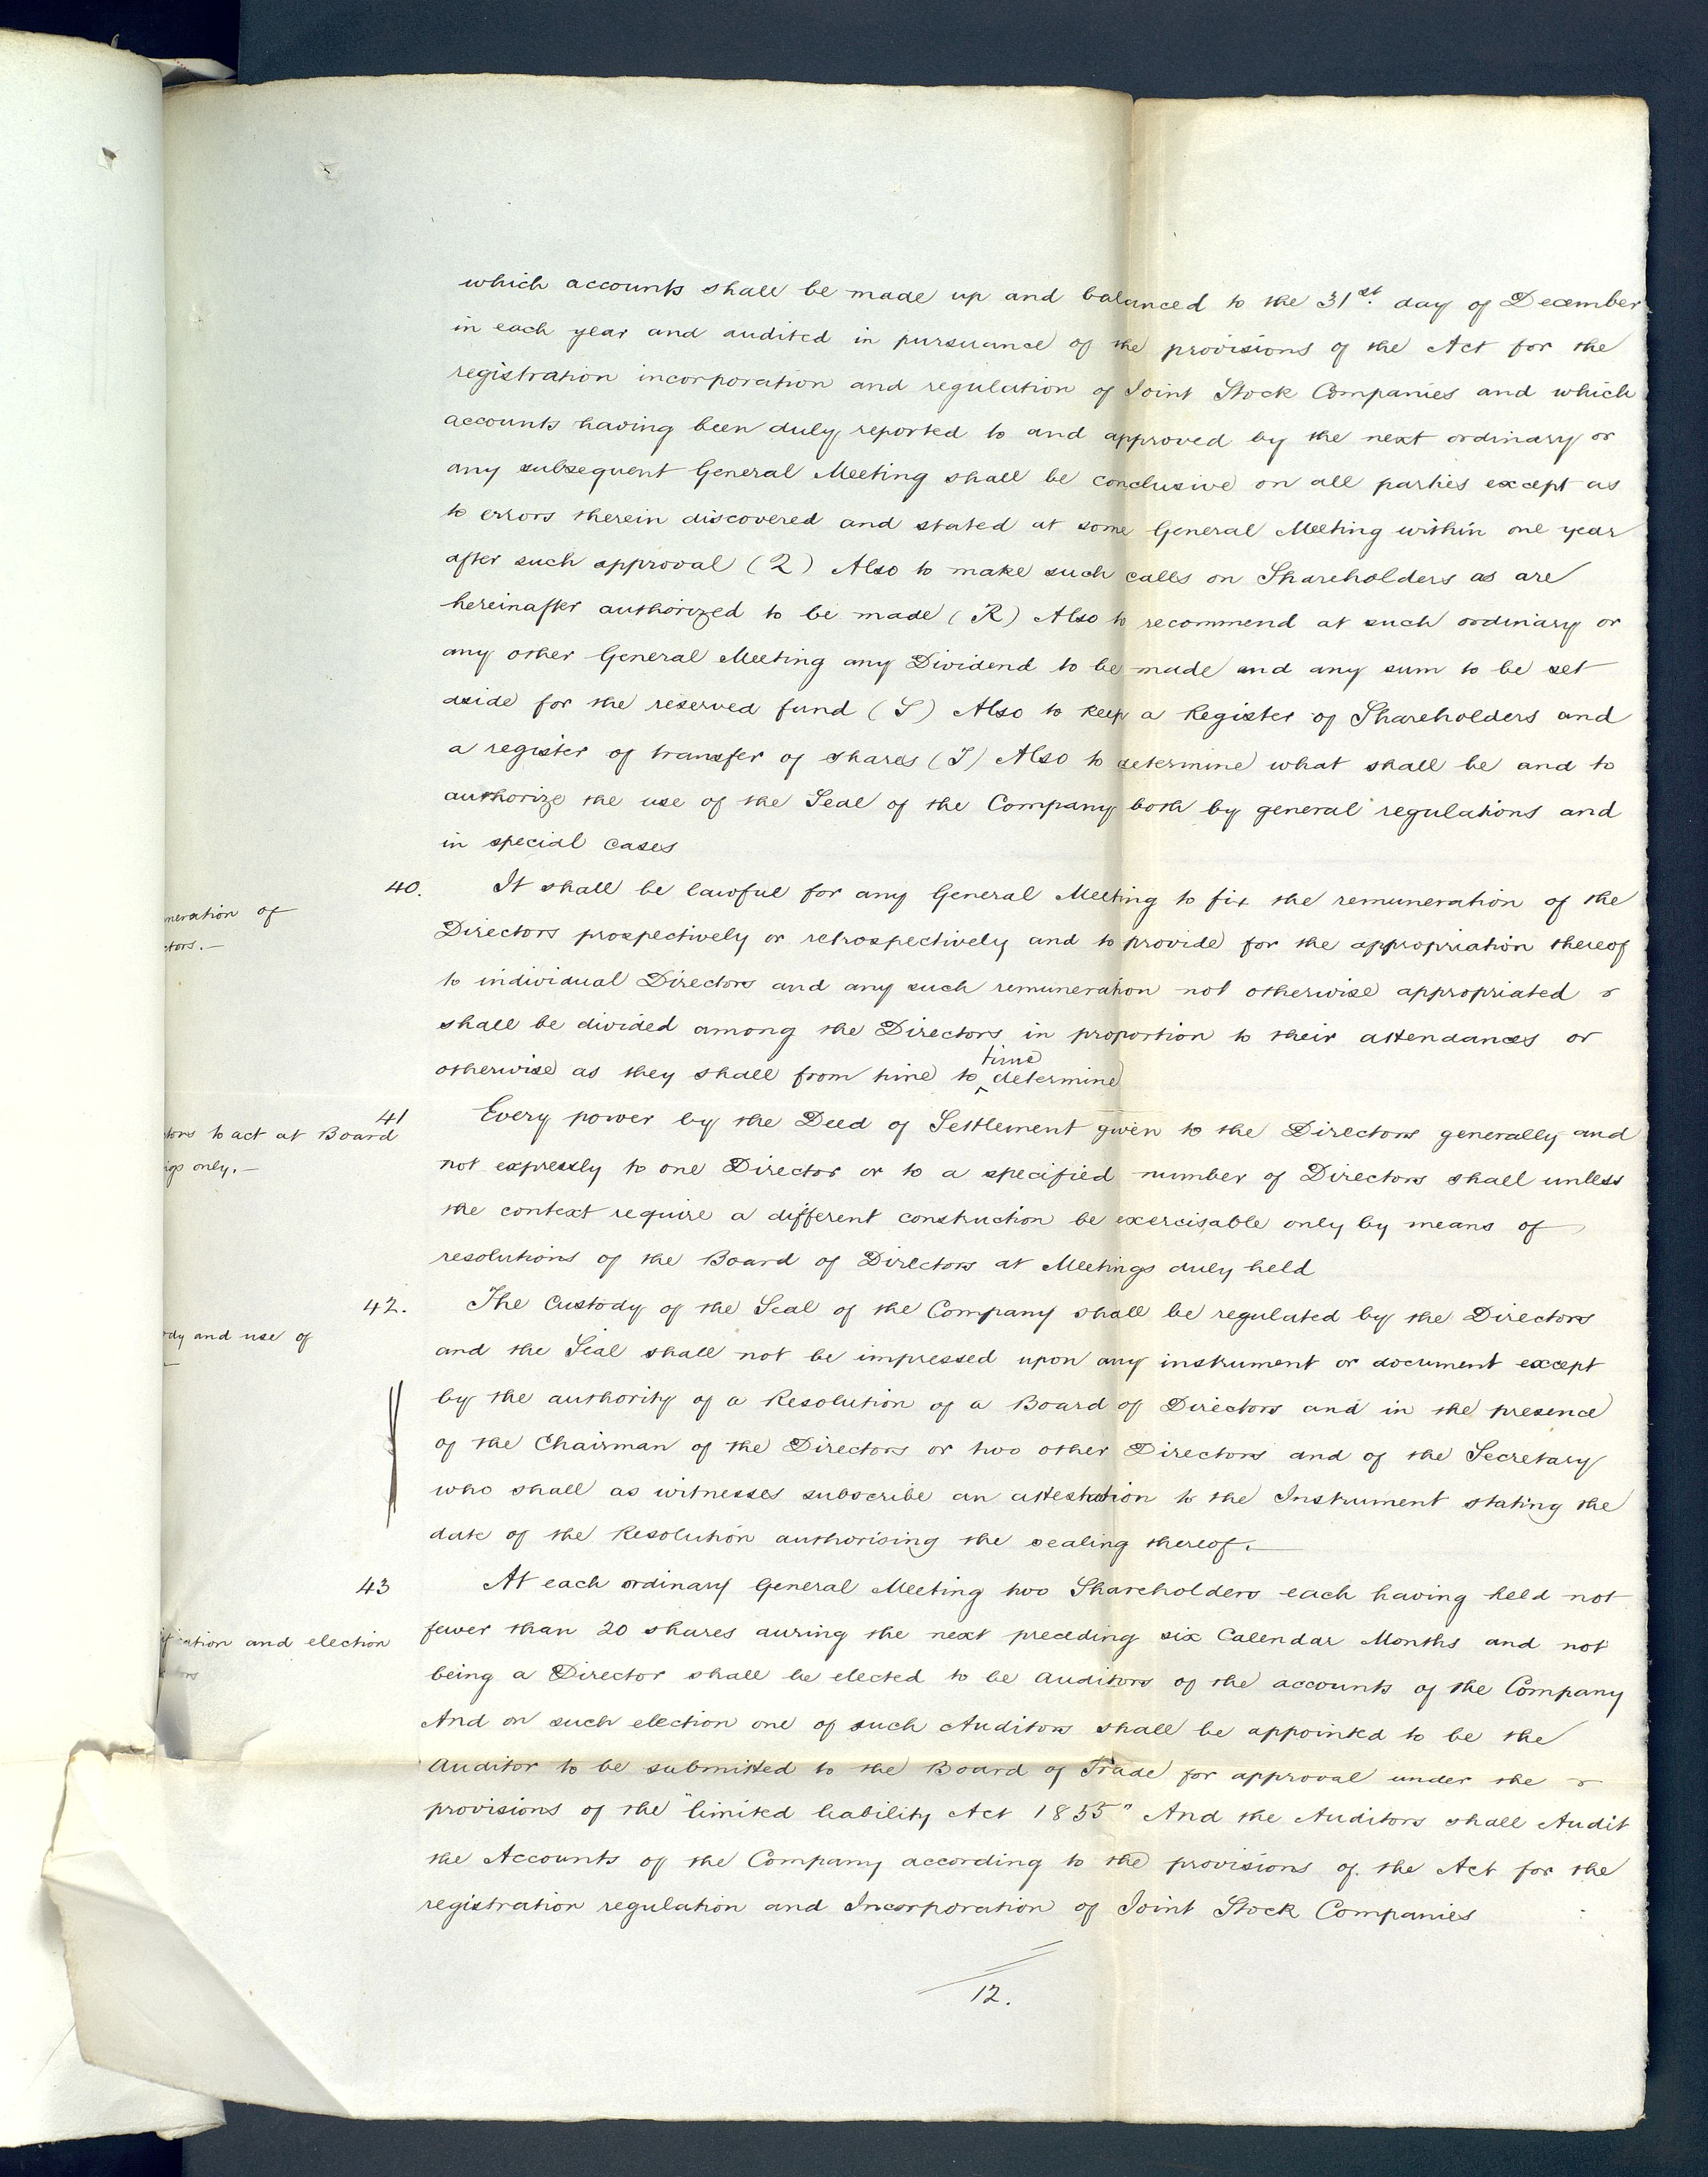 which accounts shall be made up and balanced to the 31st day of December
in each year and audited in pursuance of the provisions of the Act for the
registration incorporation and regulation of Joint Stock Companies and which
accounts having been duly reported to and approved by the next ordinary or
any subsequent General Meeting shall be conclusive on all parties except as
to errors therein discovered and stated at some General Meeting within one year
after such approval (Q) Also to make such calls on Shareholders as are
hereinafter authorized to be made (R) Also to recommend at such ordinary or
any other General Meeting any Dividend to be made and any sum to be set
aside for the reserved fund (S) Also to keep a Register of Shareholders and
a register of transfer of shares (T) Also to determine what shall be and to
authorize the use of the Seal of the Company both by general regulations and
in special cases
40. It shall be lawful for any General Meeting to fix the remuneration of the
neration of
Directors prospectively or retrospectively and to provide for the appropriation thereof
ctors.—
to individual Directors and any such remuneration not otherwise appropriated
shall be divided among the Directors in proportion to their attendances or
otherwise as they shall from time to time determine
41 Every power by the Deed of Settlement given to the Directors generally and
tors to act at Board
not expressly to one Director or to a specified number of Directors shall unless
igs only.—
the context require a different construction be exercisable only by means of
resolutions of the Board of Directors at Meetings duly held
42. The Custody of the Seal of the Company shall be regulated by the Directors
dy and use of
and the Seal shall not be impressed upon any instrument or document except
by the authority of a Resolution of a Board of Directors and in the presence
of the Chairman of the Directors or two other Directors and of the Secretary
who shall as witnesses subscribe an attestation to the Instrument stating the
date of the Resolution authorising the sealing thereof.—
43 At each ordinary General Meeting two Shareholders each having held not
fewer than 20 shares during the next preceding six Calendar Months and not
ation and election
being a Director shall be elected to be Auditors of the accounts of the Company
tors
And on such election one of such Auditors shall be appointed to be the
Auditor to be submitted to the Board of Trade for approval under the
provisions of the "limited liability Act 1855" And the Auditors shall Audit
the Accounts of the Company according to the provisions of the Act for the
registration regulation and Incorporation of Joint Stock Companies
12.